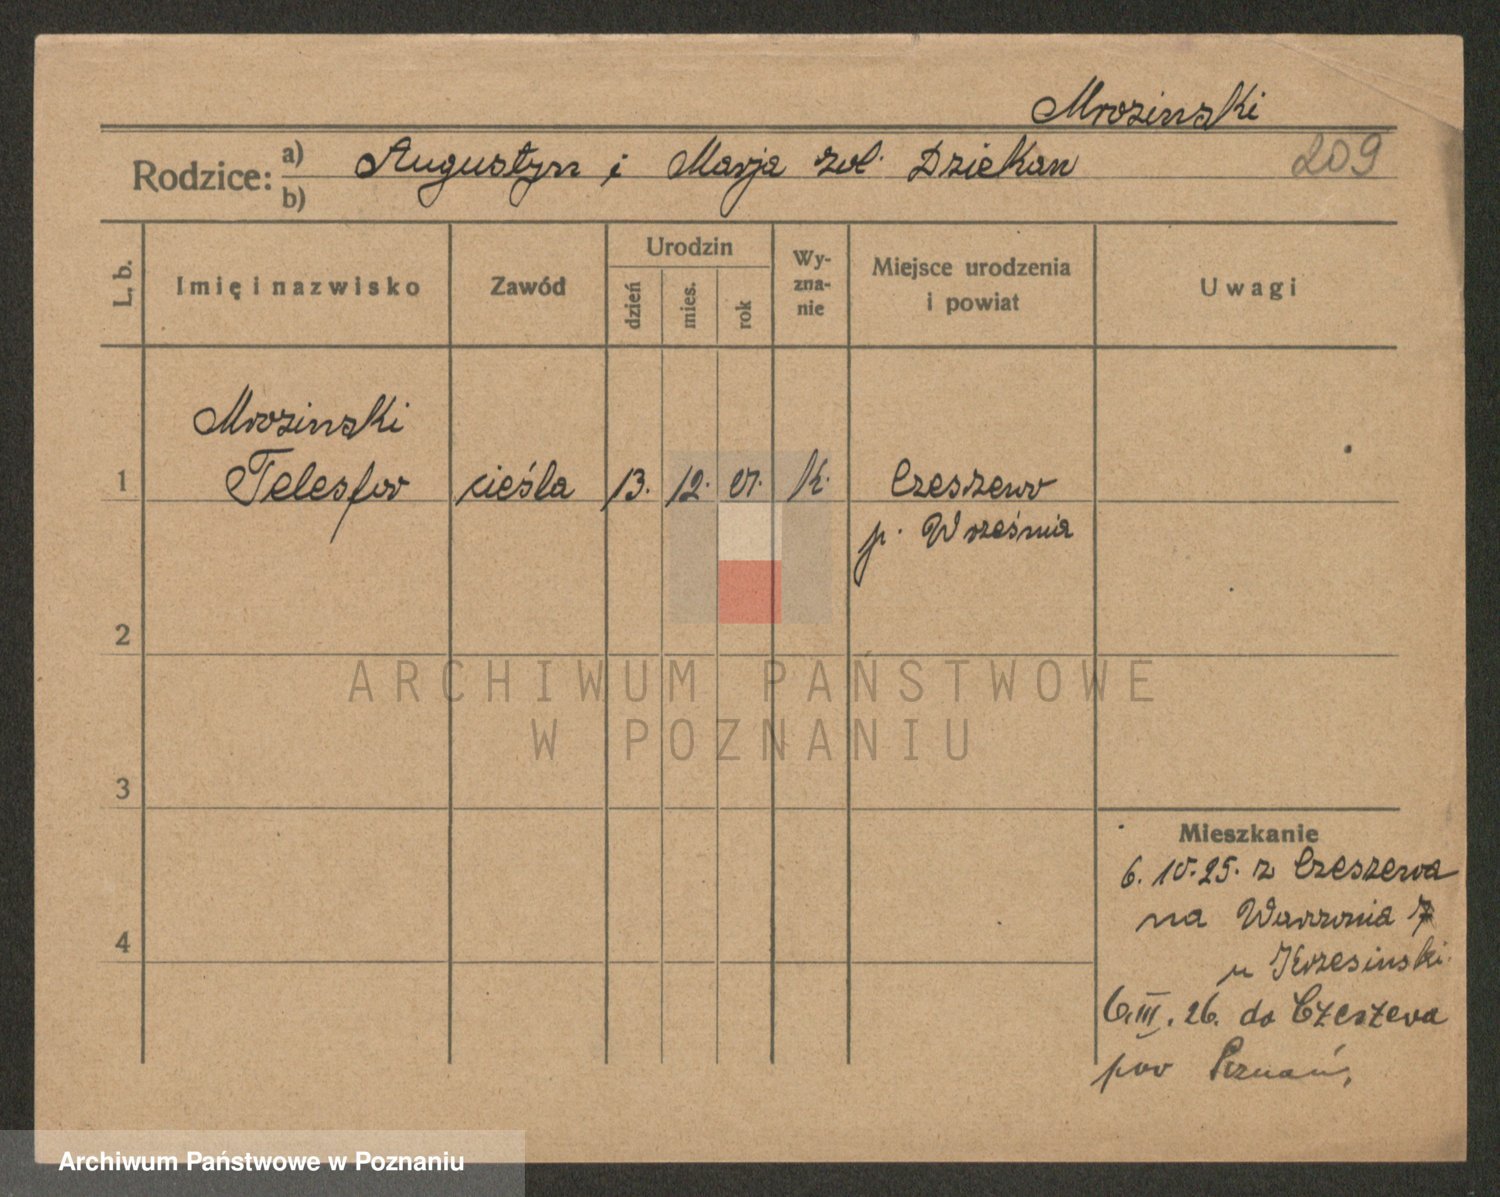 Mrozinski
Rodzice: a) b) Augustyn i Marja rol. Dziekan 209
L. b. Imię i nazwisko Zawód Urodzin dzień mies. rok Wy-zna-nie Miejsce urodzenia i powiat Uwagi
Mrozinski
1 Telesfor cieśla 13. 12. 01. k. Czeszewo
p. Września
2
ARCHIWUM PAŃSTWOWE
W POZNANIU
3
Mieszkanie
6. 10. 25. z Czeszewa
na 7
4 u Krzesinski.
6.III.26. do Czeszewa
pow Poznań,
Archiwum Państwowe w Poznaniu